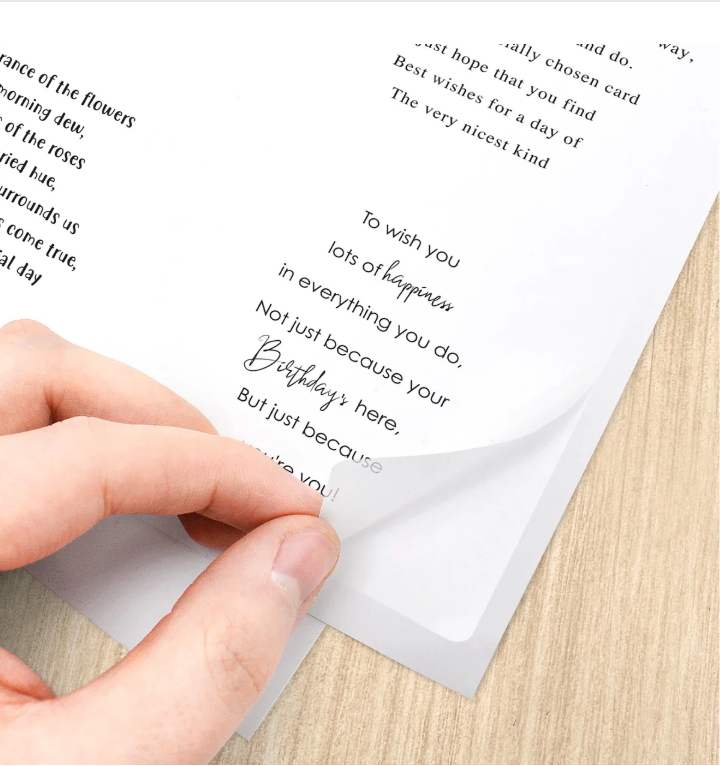 of the flowers
morning dew,
of the roses
hue,
us
come true,
day
way,
and do.
chosen card
just hope that you find
Best wishes for a day of
The very nicest kind
To wish you
lots of happiness
in everything you do,
Not just because your
Birthday's here,
But just because
you're you!